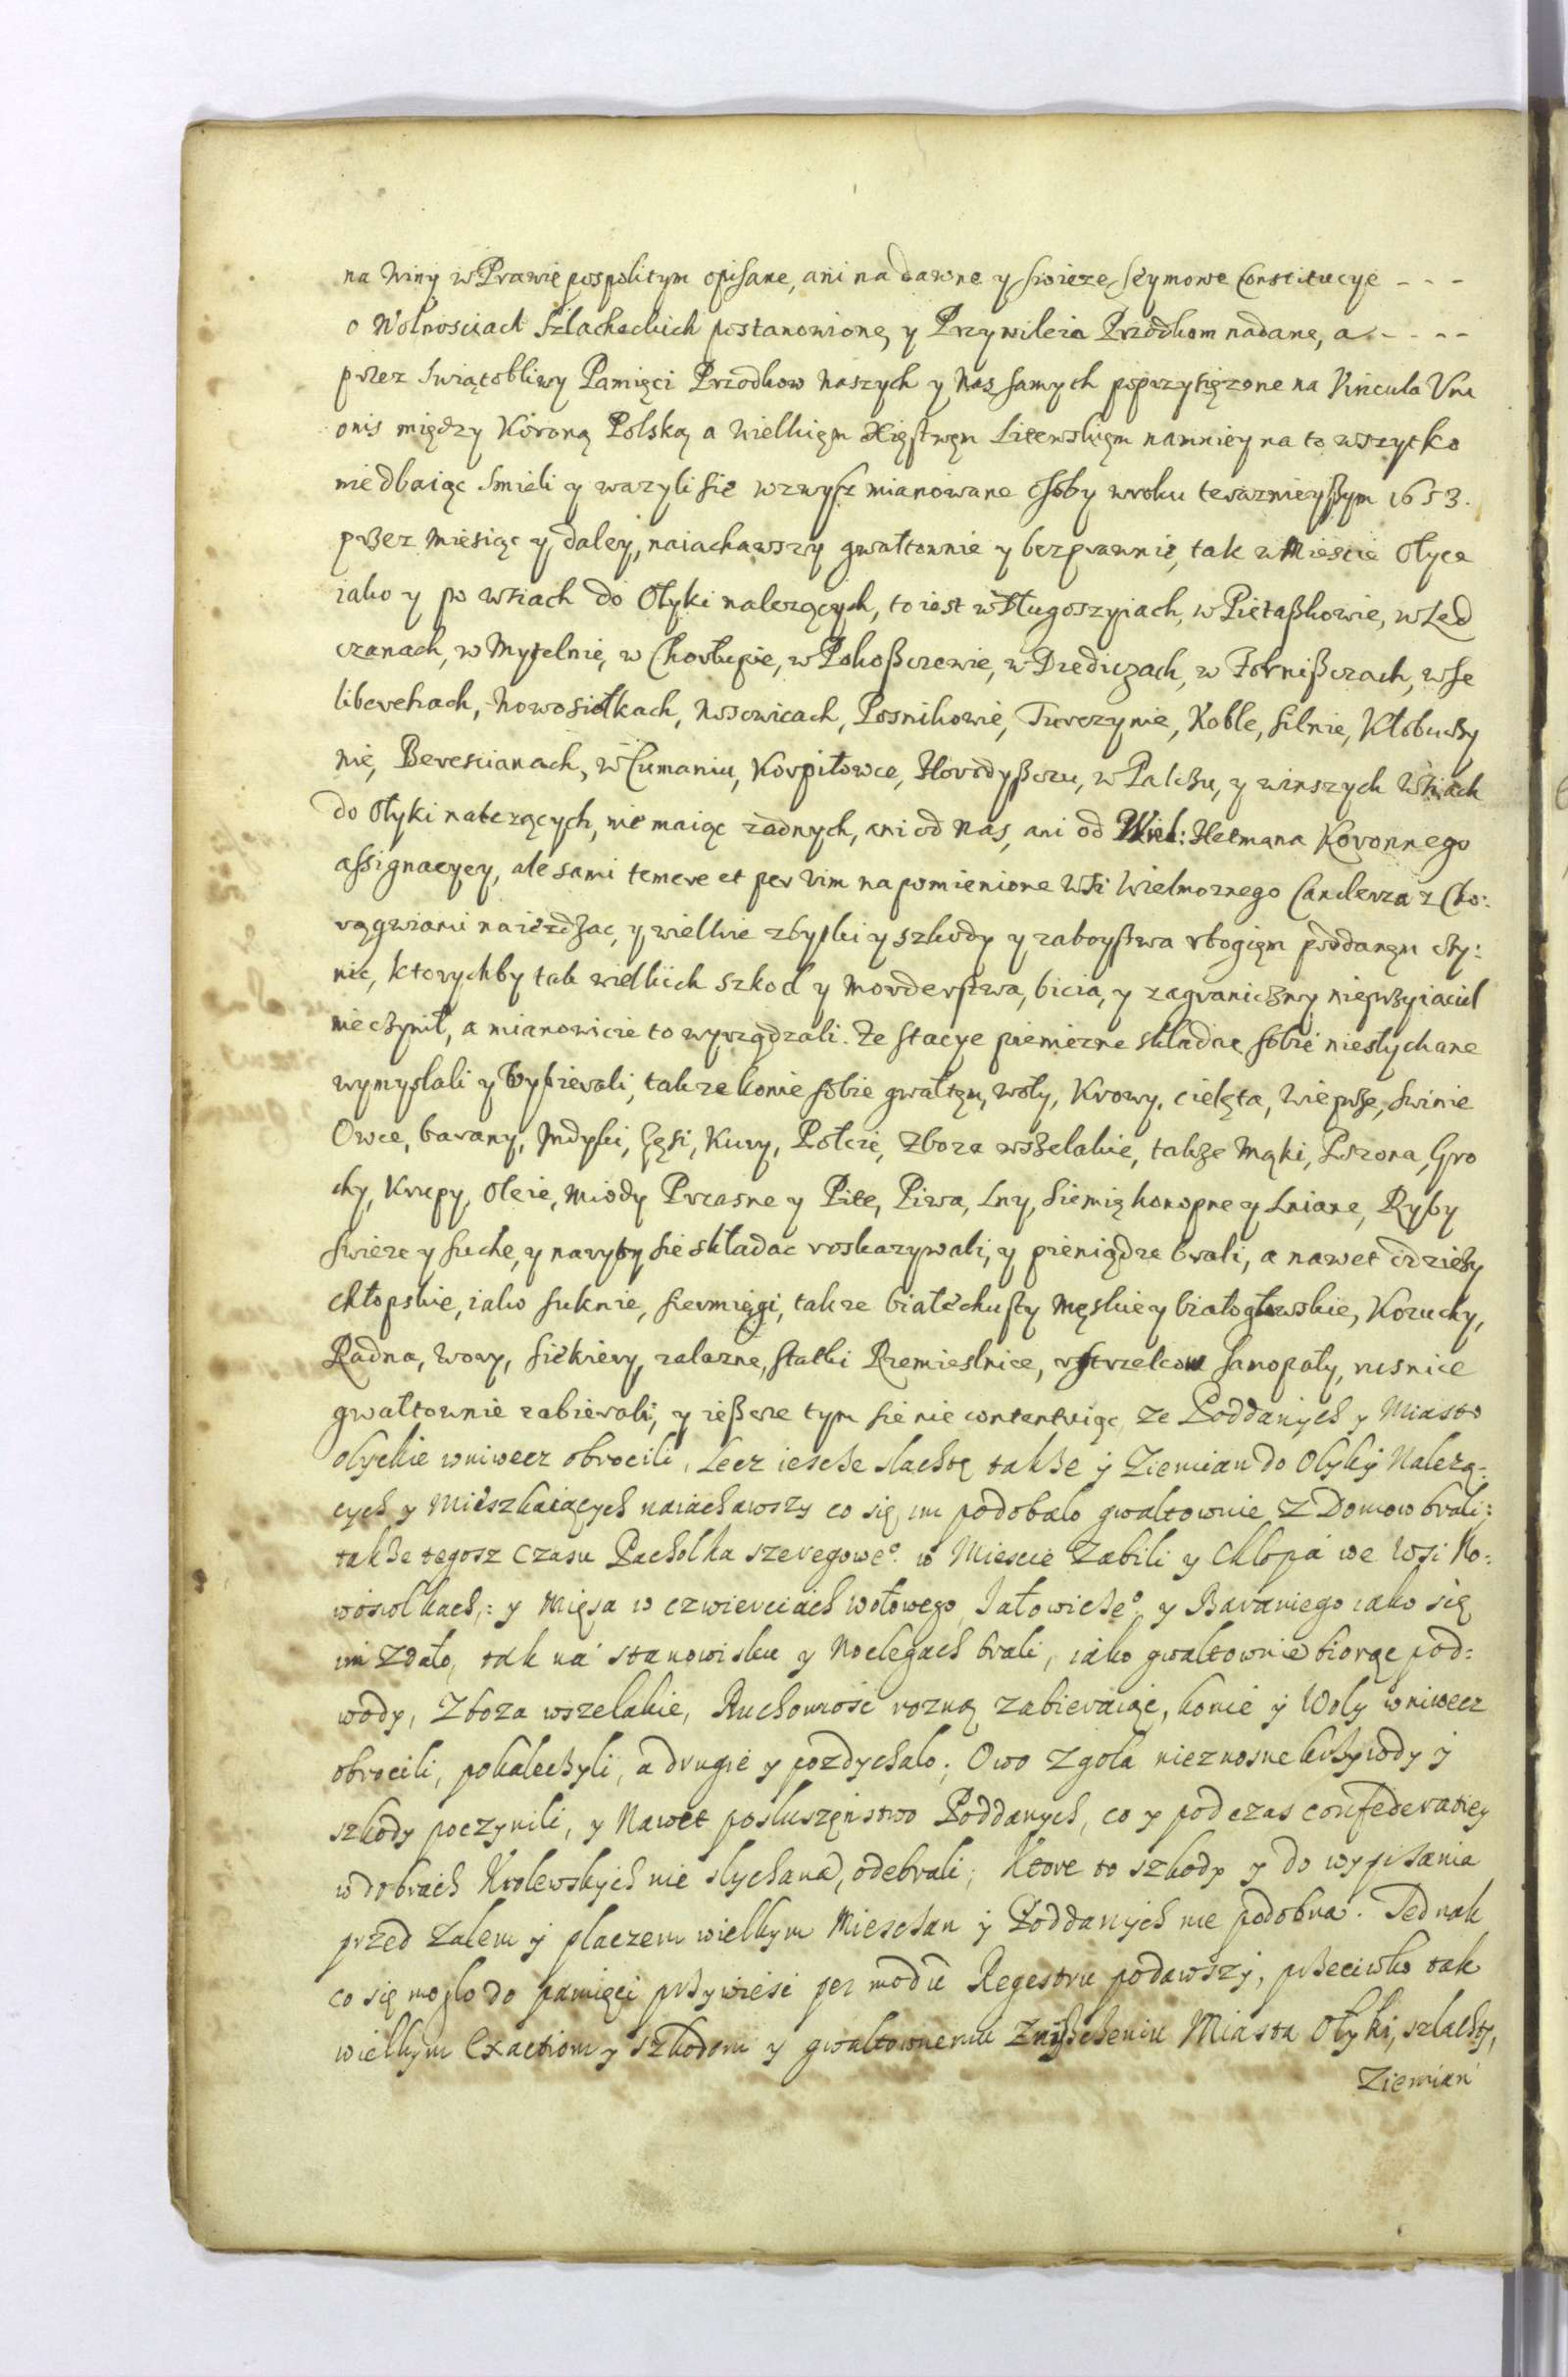 na Winy w Prawie pospolitym opisane, ani na dawne y swieze Seymowe Constitucye - - -
o Wolnosciach Szlacheckich postanowione, y Przywileia Przodkom nadane, a - - - -
przez Swiątobliwy Pamięci Przodkow Naszych y Nas samych poprzysięzone na Vincula Vni
onis między Koroną Polską a Wielkięm Xięstwęm Litewskięm namniey na to wszytko
niedbaiąc Smieli y wazyli się wzwysz mianowane osoby wroku terazniejszym 1653.
przez Miesiąc y daley, naiachawszy gwałtownie y bezprawnie, tak w Miescie Ołyce
iako y po wsiach do Ołyki nalezących, to iest w Długoszyiach, w Pietaßkowie, w Zad
czanach, w Mytelnie, w Chorłupie, w Pokoßczewie, w Drediczach, w Zornißczach, w Se
liberehach, Nowosiołkach, Nosowicach, Posnikowie, Turczynie, Koble, Silnie, Kłobuczy
nie, Berescianach, w Cumaniu, Korpiłowce, Horodyßczu, w Palczu, y winszych Wsiach
do Ołyki nalezących, nie maiąc zadnych, ani od Nas, ani od Wiel: Hetmana Koronnego
assignacyey, ale sami temere et per vim na pomienione Wsi Wielmoznego Canclerza z Cho:
rągwiami naiezdzac, y wielkie zbytki y szkody y zaboystwa vbogięm poddanęm czy:
nic, ktorychby tak wielkich szkod y Morderstwa, bicia, y zagraniczny nieprzyiaciel
nieczynił, a mianowicie to wyrządzali. Ze Stacye pieniezne składne sobie niesłychane
wymyslali y wybierali, takze konie sobie gwałtęm, woły, Krowy, cielęta, Wieprze, Swinie
Owce, barany, Indyki, Gęsi, Kury, Połcie, Zboza wszelakie, takze Mąki, Pszona, Gro
chy, Krupy, Oleie, Miody Przasne y Pite, Piwa, Lny, Siemię konopne y Lniane, Ryby
Swieze y Suche, y na ryby się składac roskazywali, y pieniądze brali, a nawet odziezy
chłopskie, iako suknie, siermięgi, takze białe chusty Męskie y białogłowskie, Kozuchy,
Radna, wory, Siekiery, zalazne, Statki Rzemieslnice, v strzelcow Samopały, rusnice
gwałtownie zabierali, y ießcze tym sie nie contentuiąc, ze Poddanych y Miasto
ołyckie wniwecz obrocili, Lecz iescze slachtę takze y Ziemian do Olyky Nalezą=
cych y Mieszkaiących naiachawszy co się im podobało gwałtownie z Domow brali;
takze tegosz Czasu Pachołka szeregoweo w Miescie Zabili y Chłopa we Wsi No=
wosiołkach: y Mięsa w czwierciach wołowego, Jałowiczeo, y Baraniego iako się
im Zdało, tak na stanowisku y Noclegach brali, iako gwałtownie biorąc pod=
wody, Zboza wszelakie, Ruchomość rozną zabieraiąc, konie y Woły wniwecz
obrocili, pokaleczyli, a drugie y pozdychało; Owo Zgoła nieznosne krzywdy y
szkody poczynili, y Nawet posłuszęństwo Poddanych, co y podczas confederatiey
w dobrach Krolewskych nie slychana, odebrali; Ktore to szkody y do wypisania
przed Zalem y placzem wielkym Mieszczan y Poddanych nie podobna. Jednak
co się mogło do pamięci przywieść per modū Regestru podawszy, przeciwko tak
wielkym Exactiom y szkodom y gwałtownemu Zniszczeniu Miasta Ołyki, szlachty,
Ziemian